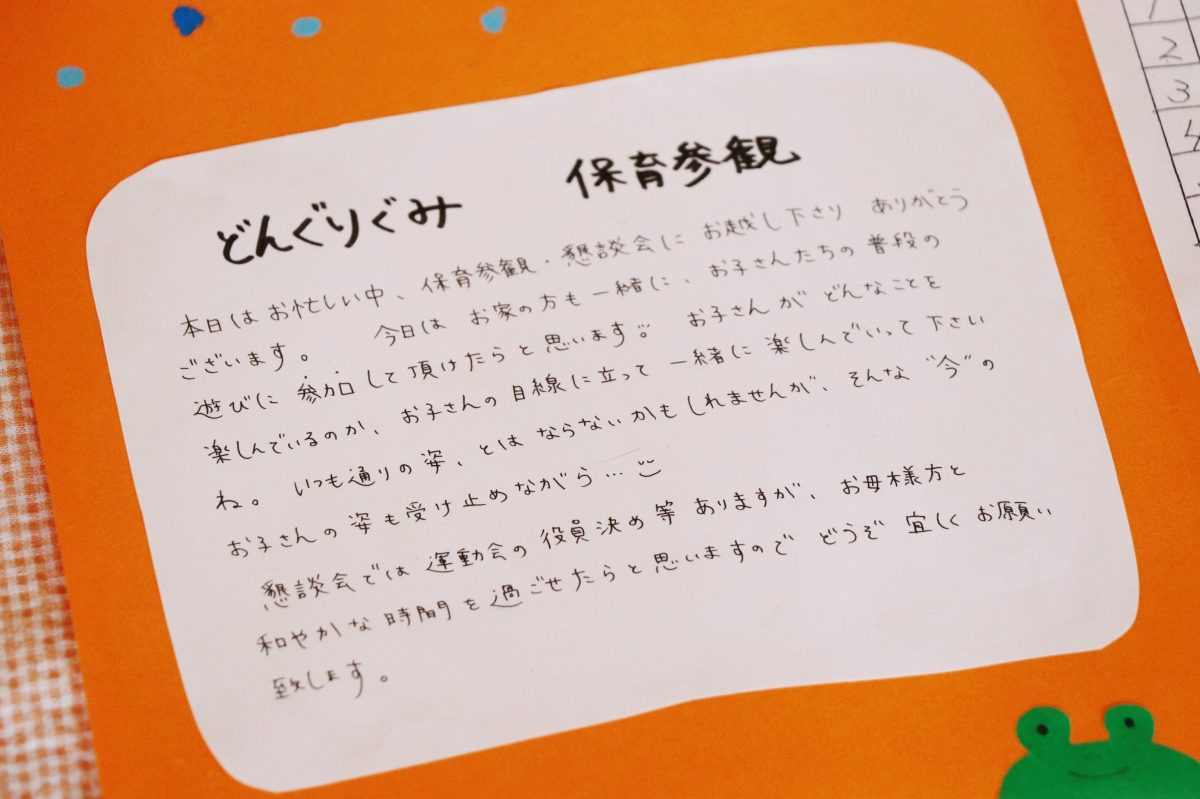 どんぐりぐみ 保育参観
本日はお忙しい中、保育参観・懇談会にお越し下さり ありがとう
ございます。 今日は お家の方も一緒に、お子さんたちの普段の
遊びに参加して頂けたらと思います。 お子さんが どんなことを
楽しんでいるのか、お子さんの目線に立って一緒に楽しんでいって下さい
ね。 いつも通りの姿、とはならないかもしれませんが、そんな“今”の
お子さんの姿も受け止めながら…
懇談会では運動会の役員決め等ありますが、お母様方と
和やかな時間を過ごせたらと思いますので どうぞ 宜しくお願い
致します。
1
2
3
4